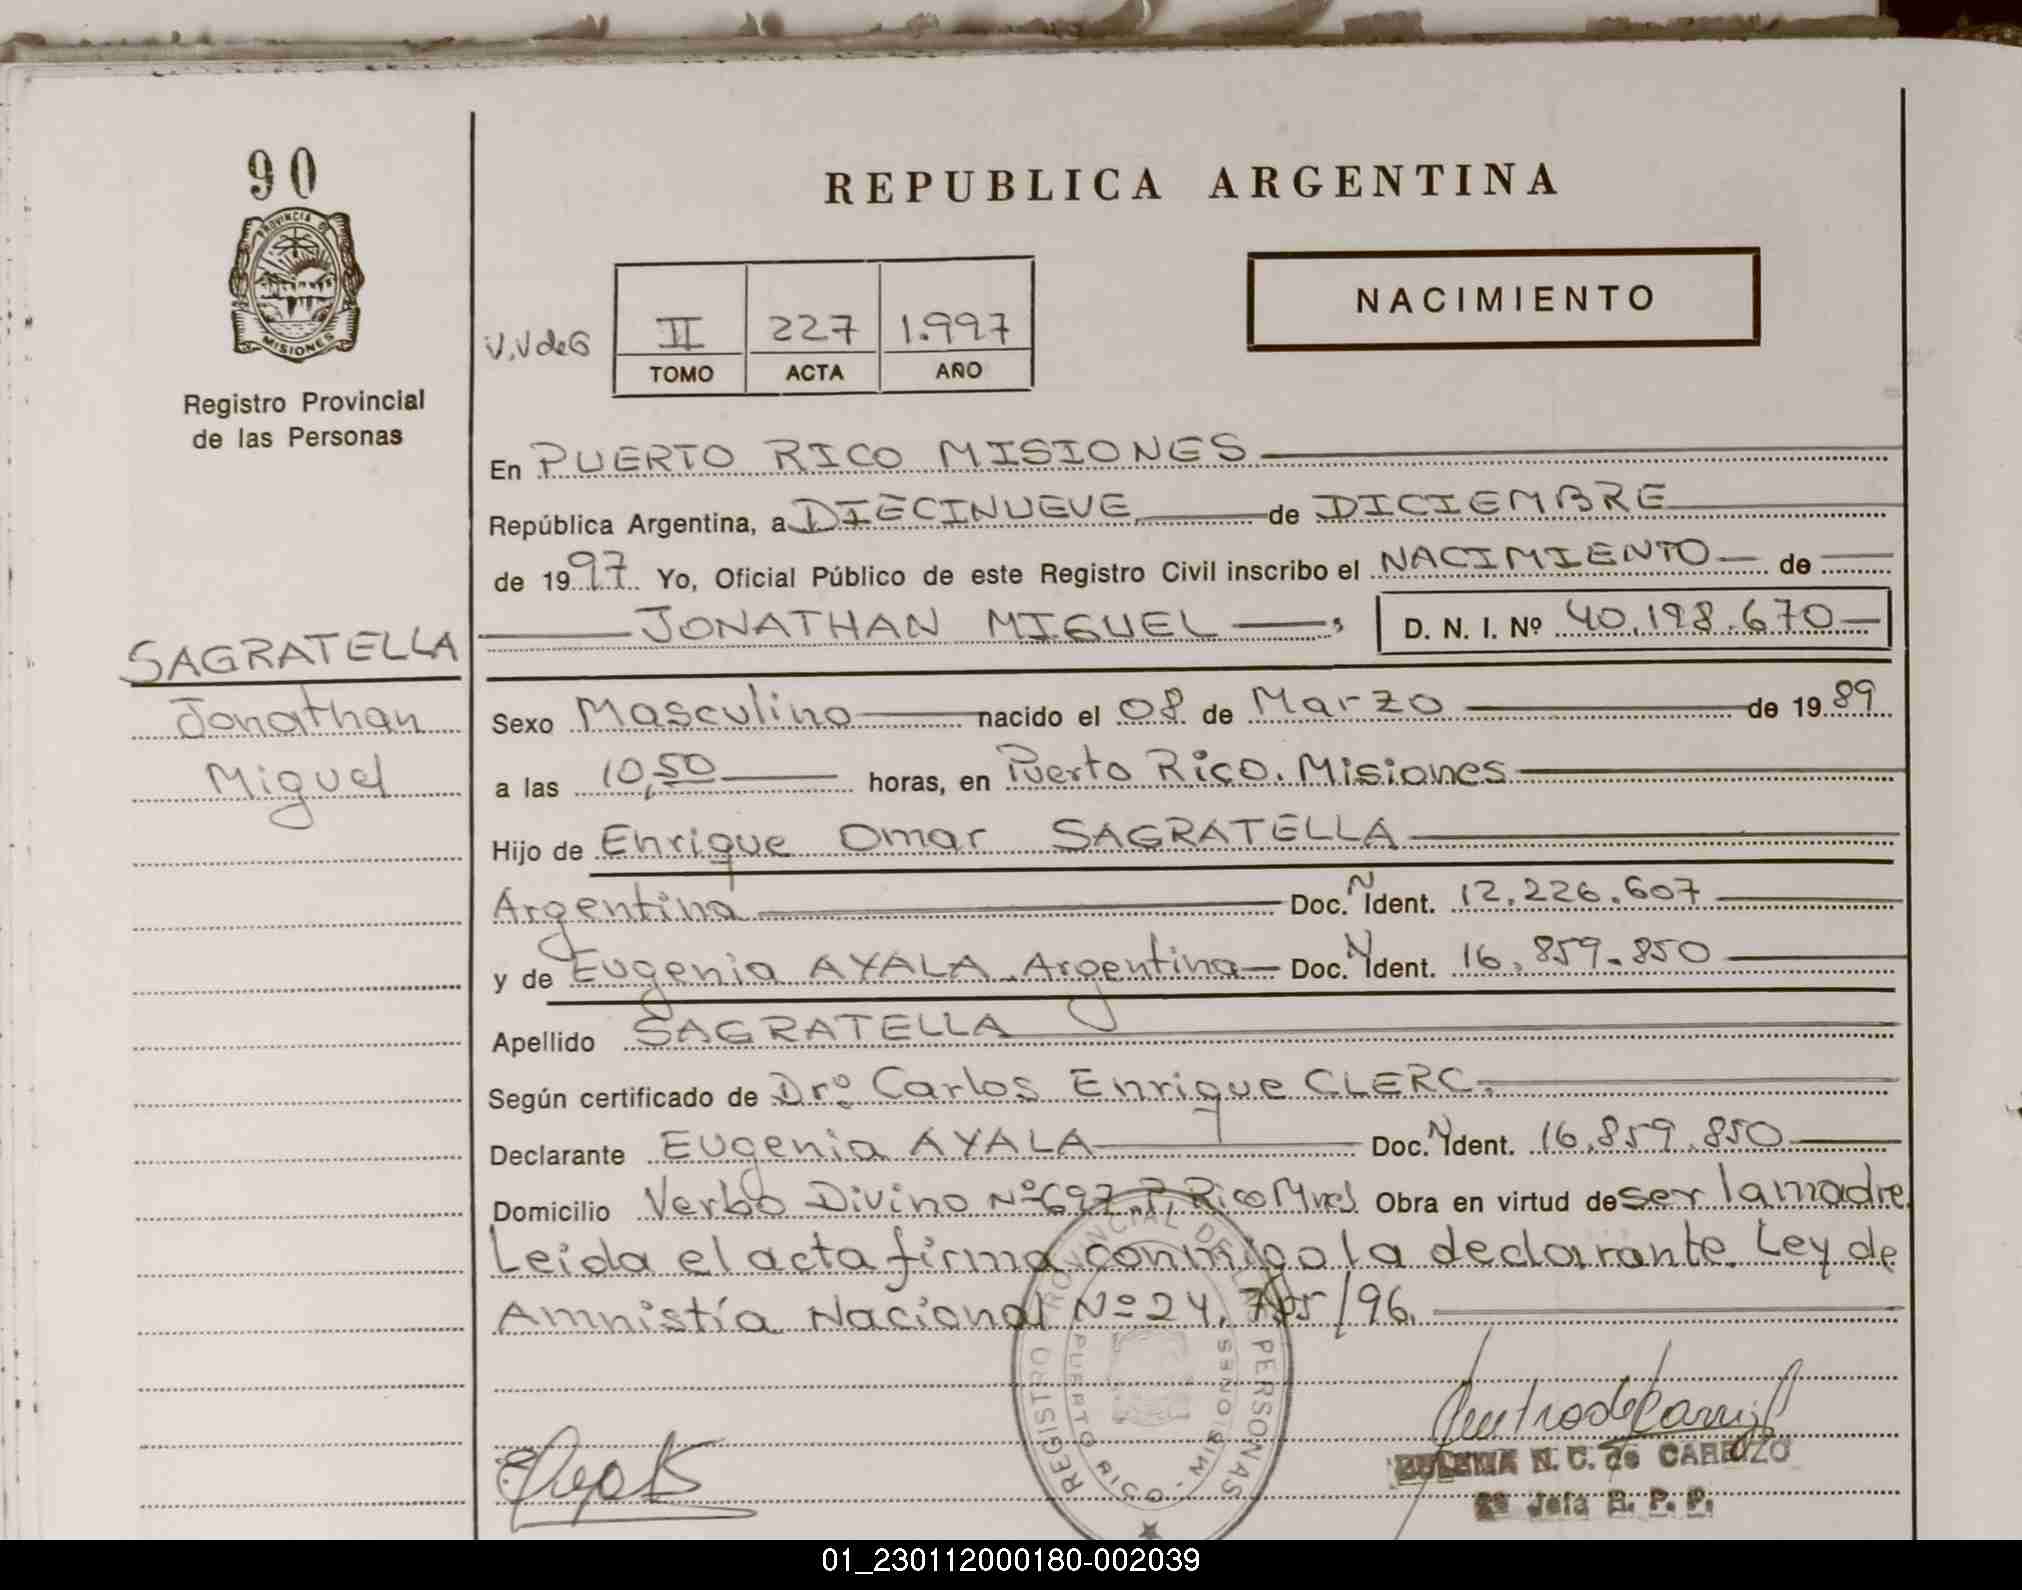 90
PROVINCIA DE
MISIONES
Registro Provincial
de las Personas
REPUBLICA ARGENTINA
NACIMIENTO
V.V de G
II 227 1.997
TOMO ACTA AÑO
En PUERTO RICO MISIONES
República Argentina, a DIECINUEVE de DICIEMBRE
de 1997. Yo, Oficial Público de este Registro Civil inscribo el NACIMIENTO de
JONATHAN MIGUEL, D. N. I. Nº 40.198.670
SAGRATELLA
Jonathan
Miguel
Sexo Masculino nacido el 08 de Marzo de 1989
a las 10,50 horas, en Puerto Rico. Misiones
Hijo de Enrique Omar SAGRATELLA
Argentina Doc. N Ident. 12.226.607
y de Eugenia AYALA. Argentina Doc. N Ident. 16.859.850
Apellido SAGRATELLA
Según certificado de Dr. Carlos Enrique CLERC.
Declarante Eugenia AYALA Doc. N Ident. 16.859.850
Domicilio Verbo Divino Nº 697. P. Rico Mnes Obra en virtud de ser la madre
Leida el acta firma conmigo la declarante. Ley de
Amnistía Nacional Nº 24. /96.
REGISTRO PROVINCIAL DE LAS PERSONAS
PUERTO RICO - MISIONES
N. C. de CARRIZO
2ª Jefa R. P. P.
01_230112000180-002039